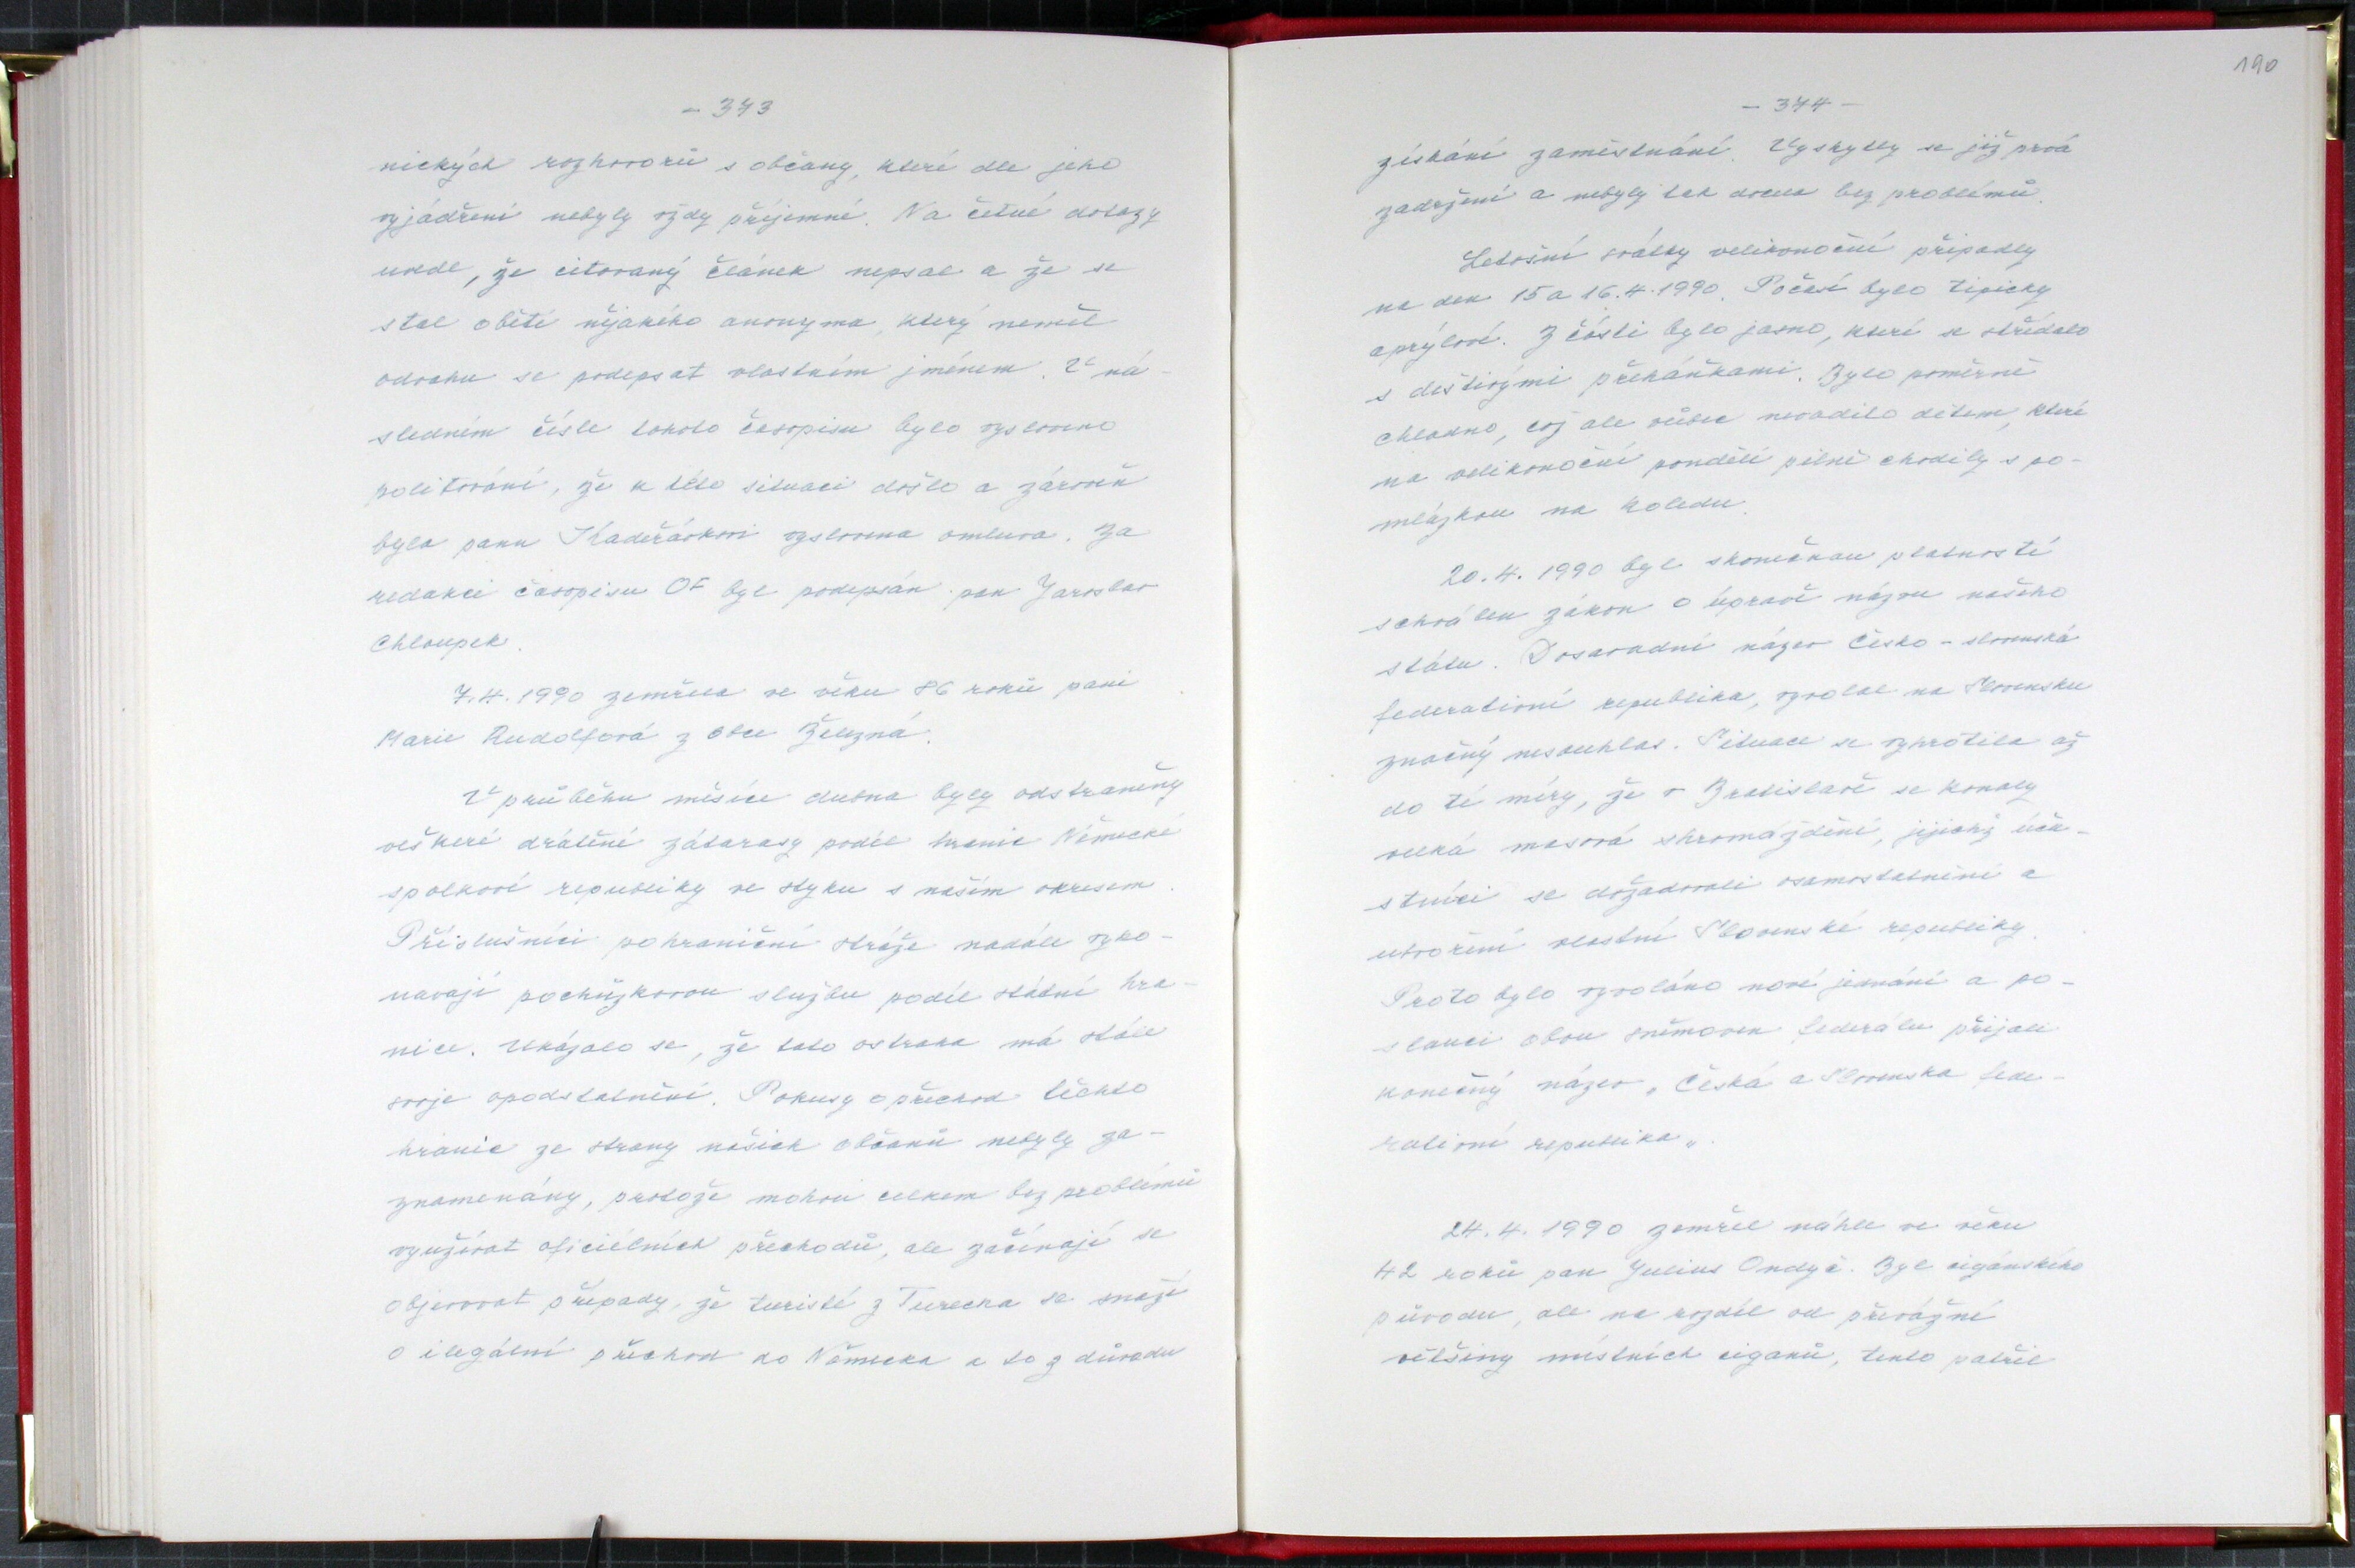 - 373
nických rozhovorů s občany, které dle jeho
vyjádření nebyly vždy příjemné. Na četné dotazy
uvedl, že citovaný článek nepsal a že se
stal obětí nějakého anonyma, který neměl
odvahu se podepsat vlastním jménem. V ná-
sledném čísle tohoto časopisu bylo vysloveno
politování, že k této situaci došlo a zároveň
byla panu Kadeřávkovi vyslovena omluva. Za
redakci časopisu OF byl podepsán pan Jaroslav
Chloupek.
7.4.1990 zemřela ve věku 86 roků paní
Marie Rudolfová z obce Železná.
V průběhu měsíce dubna byly odstraněny
veškeré drátěné zátarasy podél hranic Německé
spolkové republiky ve styku s naším okresem.
Příslušníci pohraniční stráže nadále vyko-
navají pochůzkovou službu podél státní hra-
nice. Ukázalo se, že tato ostraha má stále
svoje opodstatnění. Pokusy o přechod těchto
hranic ze strany našich občanů nebyly za-
znamenány, protože mohou celkem bez problémů
využívat oficiélních přechodů, ale začínají se
objevovat případy, že turisté z Turecka se snaží
o ilegální přechod do Německa a to z důvodu
190
- 374 -
získání zaměstnání. Vyskytly se již prvá
zadržení a nebyly tak docela bez problémů.
Letošní svátky velikonoční připadly
na den 15 a 16.4.1990. Počasí bylo tipicky
aprýlové. Z části bylo jasno, které se střídalo
s deštivými přeháňkami. Bylo poměrně
chladno, což ale vůbec nevadilo dětem, které
na velikonoční pondělí pilně chodily s po-
mlázkou na koledu.
20.4.1990 byl s konečnou platností
schválen zákon o úpravě názvu našeho
státu. Dosavadní název Česko-slovenská
federativní republika, vyvolal na Slovensku
značný nesouhlas. Situace se vyhrotila až
do té míry, že v Bratislavě se konaly
velká masová shromáždění, jejichž úča-
stníci se dožadovali osamostatnění a
utvoření vlastní Slovenské republiky.
Proto bylo vyvoláno nové jednání a po-
slanci obou sněmoven federálu přijali
konečný název „Česká a Slovenska fede-
rativní republika„.
24.4.1990 zemřel náhle ve věku
42 roků pan Julius Ondyč. Byl cigánského
původu, ale na rozdíl od převážné
většiny místních ciganů, tento patřil